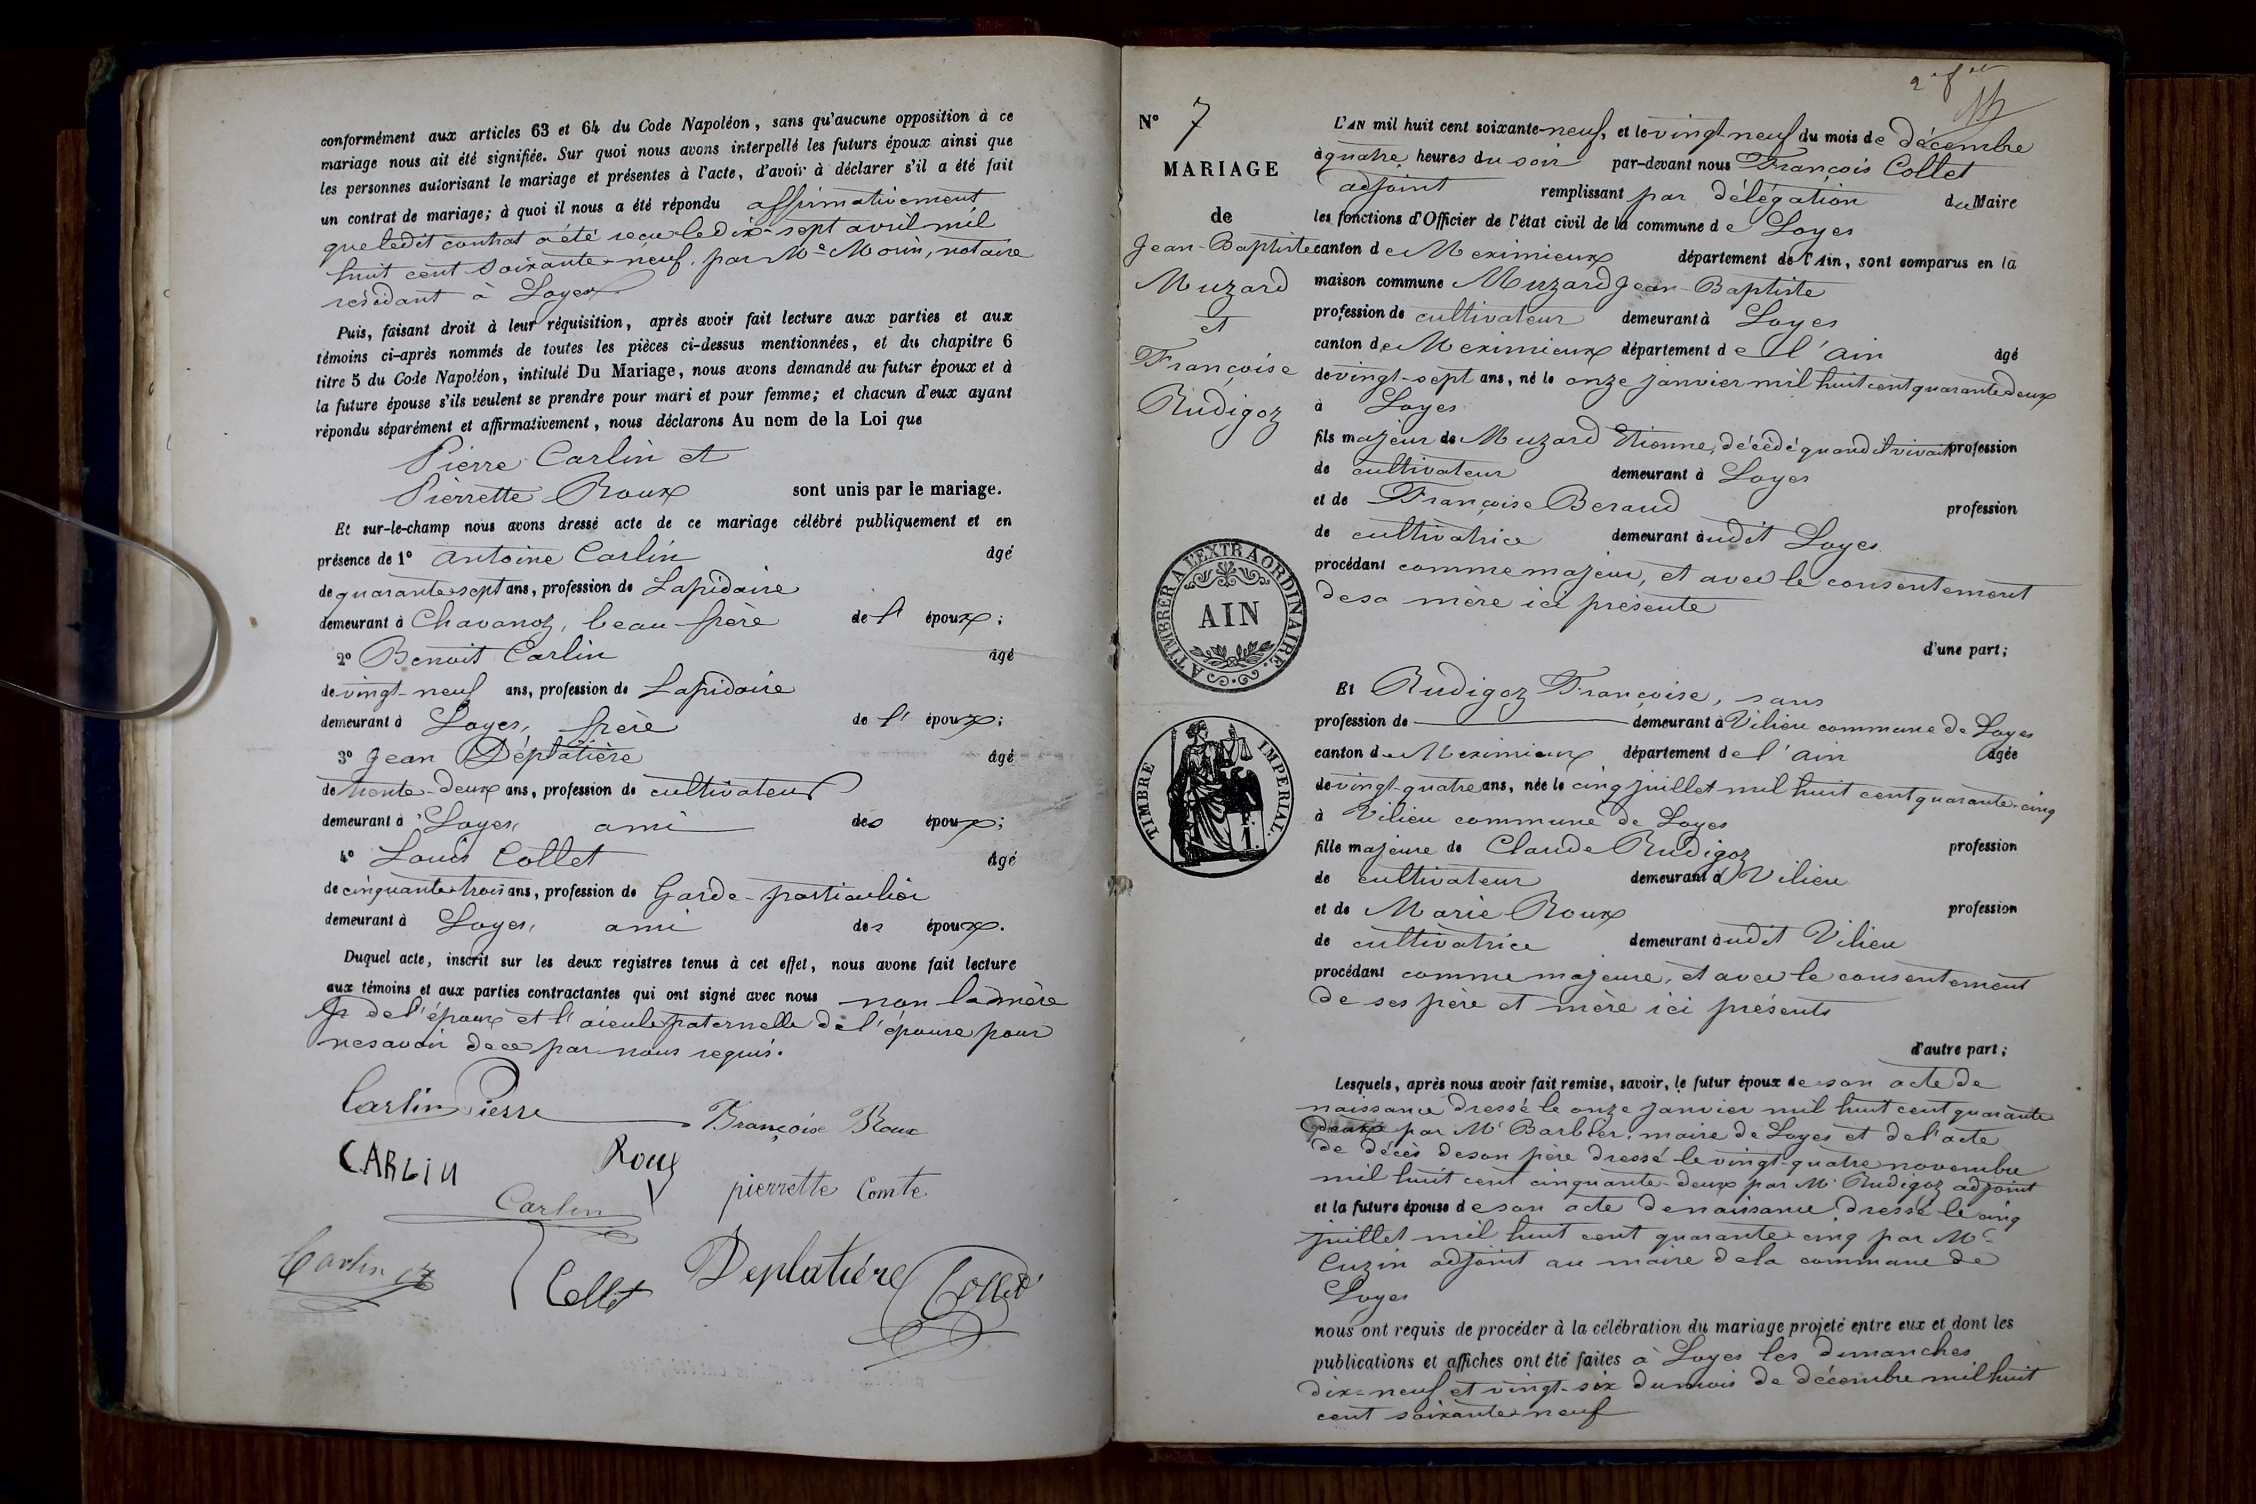 conformément aux articles 63 et 64 du Code Napoléon, sans qu'aucune opposition à ce
mariage nous ait été signifiée. Sur quoi nous avons interpellé les futurs époux ainsi que
les personnes autorisant le mariage et présentes à l'acte, d'avoir à déclarer s'il a été fait
un contrat de mariage; à quoi il nous a été répondu affirmativement
que ledit contrat a été reçu le dix-sept avril mil
huit cent soixante-neuf, par Me Morin, notaire
résidant à Loyes
Puis, faisant droit à leur réquisition, après avoir fait lecture aux parties et aux
témoins ci-après nommés de toutes les pièces ci-dessus mentionnées, et du chapitre 6
titre 5 du Code Napoléon, intitulé Du Mariage, nous avons demandé au futur époux et à
la future épouse s'ils veulent se prendre pour mari et pour femme; et chacun d'eux ayant
répondu séparément et affirmativement, nous déclarons Au nom de la Loi que
Pierre Carlin et
Pierrette Roux sont unis par le mariage.
Et sur-le-champ nous avons dressé acte de ce mariage célébré publiquement et en
présence de 1° Antoine Carlin âgé
de quarante sept ans, profession de Lapidaire
demeurant à Chavanoz, beau-frère de l' époux;
2° Benoit Carlin âgé
de vingt-neuf ans, profession de Lapidaire
demeurant à Loyes, frère de l' époux;
3° Jean Déplatière âgé
de trente-deux ans, profession de cultivateur
demeurant à Loyes, ami des époux;
4° Louis Collet âgé
de cinquante trois ans, profession de Garde-particulier
demeurant à Loyes, ami des époux.
Duquel acte, inscrit sur les deux registres tenus à cet effet, nous avons fait lecture
aux témoins et aux parties contractantes qui ont signé avec nous non la mère
de l'époux et l'aieule paternelle de l'épouse pour
ne savoir de ce par nous requis.
Carlin Pierre
Françoise Roux
CARLIN
Roux
pierrette Comte
Carlin
Carlin
Collet
Deplatière
Collet
N° 7
MARIAGE
de
Jean-Baptiste
Muzard
et
Françoise
Rudigoz
A TIMBRER A L'EXTRAORDINAIRE.
AIN
TIMBRE IMPERIAL.
L'AN mil huit cent soixante-neuf, et le vingt-neuf du mois de décembre
à quatre heures du soir par-devant nous François Collet
adjoint remplissant par délégation du Maire
les fonctions d'Officier de l'état civil de la commune de Loyes
canton de Meximieux département de l'Ain, sont comparus en la
maison commune Muzard Jean-Baptiste
profession de cultivateur demeurant à Loyes
canton de Meximieux département de l'ain âgé
de vingt-sept ans, né le onze janvier mil huit cent quarante deux
à Loyes
fils majeur de Muzard Etienne, décédé quand il vivait profession
de cultivateur demeurant à Loyes
et de Françoise Beraud profession
de cultivatrice demeurant audit Loyes
procédant comme majeur, et avec le consentement
de sa mère ici présente
d'une part;
Et Rudigoz Françoise, sans
profession de demeurant à Vilieu commune de Loyes
canton de Meximieux département de l'ain âgée
de vingt-quatre ans, née le cinq juillet mil huit cent quarante-cinq
à Vilieu commune de Loyes
fille majeure de Claude Rudigoz profession
de cultivateur demeurant à Vilieu
et de Marie Roux profession
de cultivatrice demeurant audit Vilieu
procédant comme majeure, et avec le consentement
de ses père et mère ici présents
d'autre part;
Lesquels, après nous avoir fait remise, savoir, le futur époux de son acte de
naissance dressé le onze janvier mil huit cent quarante
deux par Mr Barbier, maire de Loyes et de l'acte
de décès de son père dressé le vingt-quatre novembre
mil huit cent cinquante-deux par Mr Rudigoz adjoint
et la future épouse de son acte de naissance dressé le cinq
juillet mil huit cent quarante-cinq par Mr
Cuzin adjoint au maire de la commune de
Loyes
nous ont requis de procéder à la célébration du mariage projeté entre eux et dont les
publications et affiches ont été faites à Loyes les dimanches
dix-neuf et vingt-six du mois de décembre mil huit
cent soixante neuf